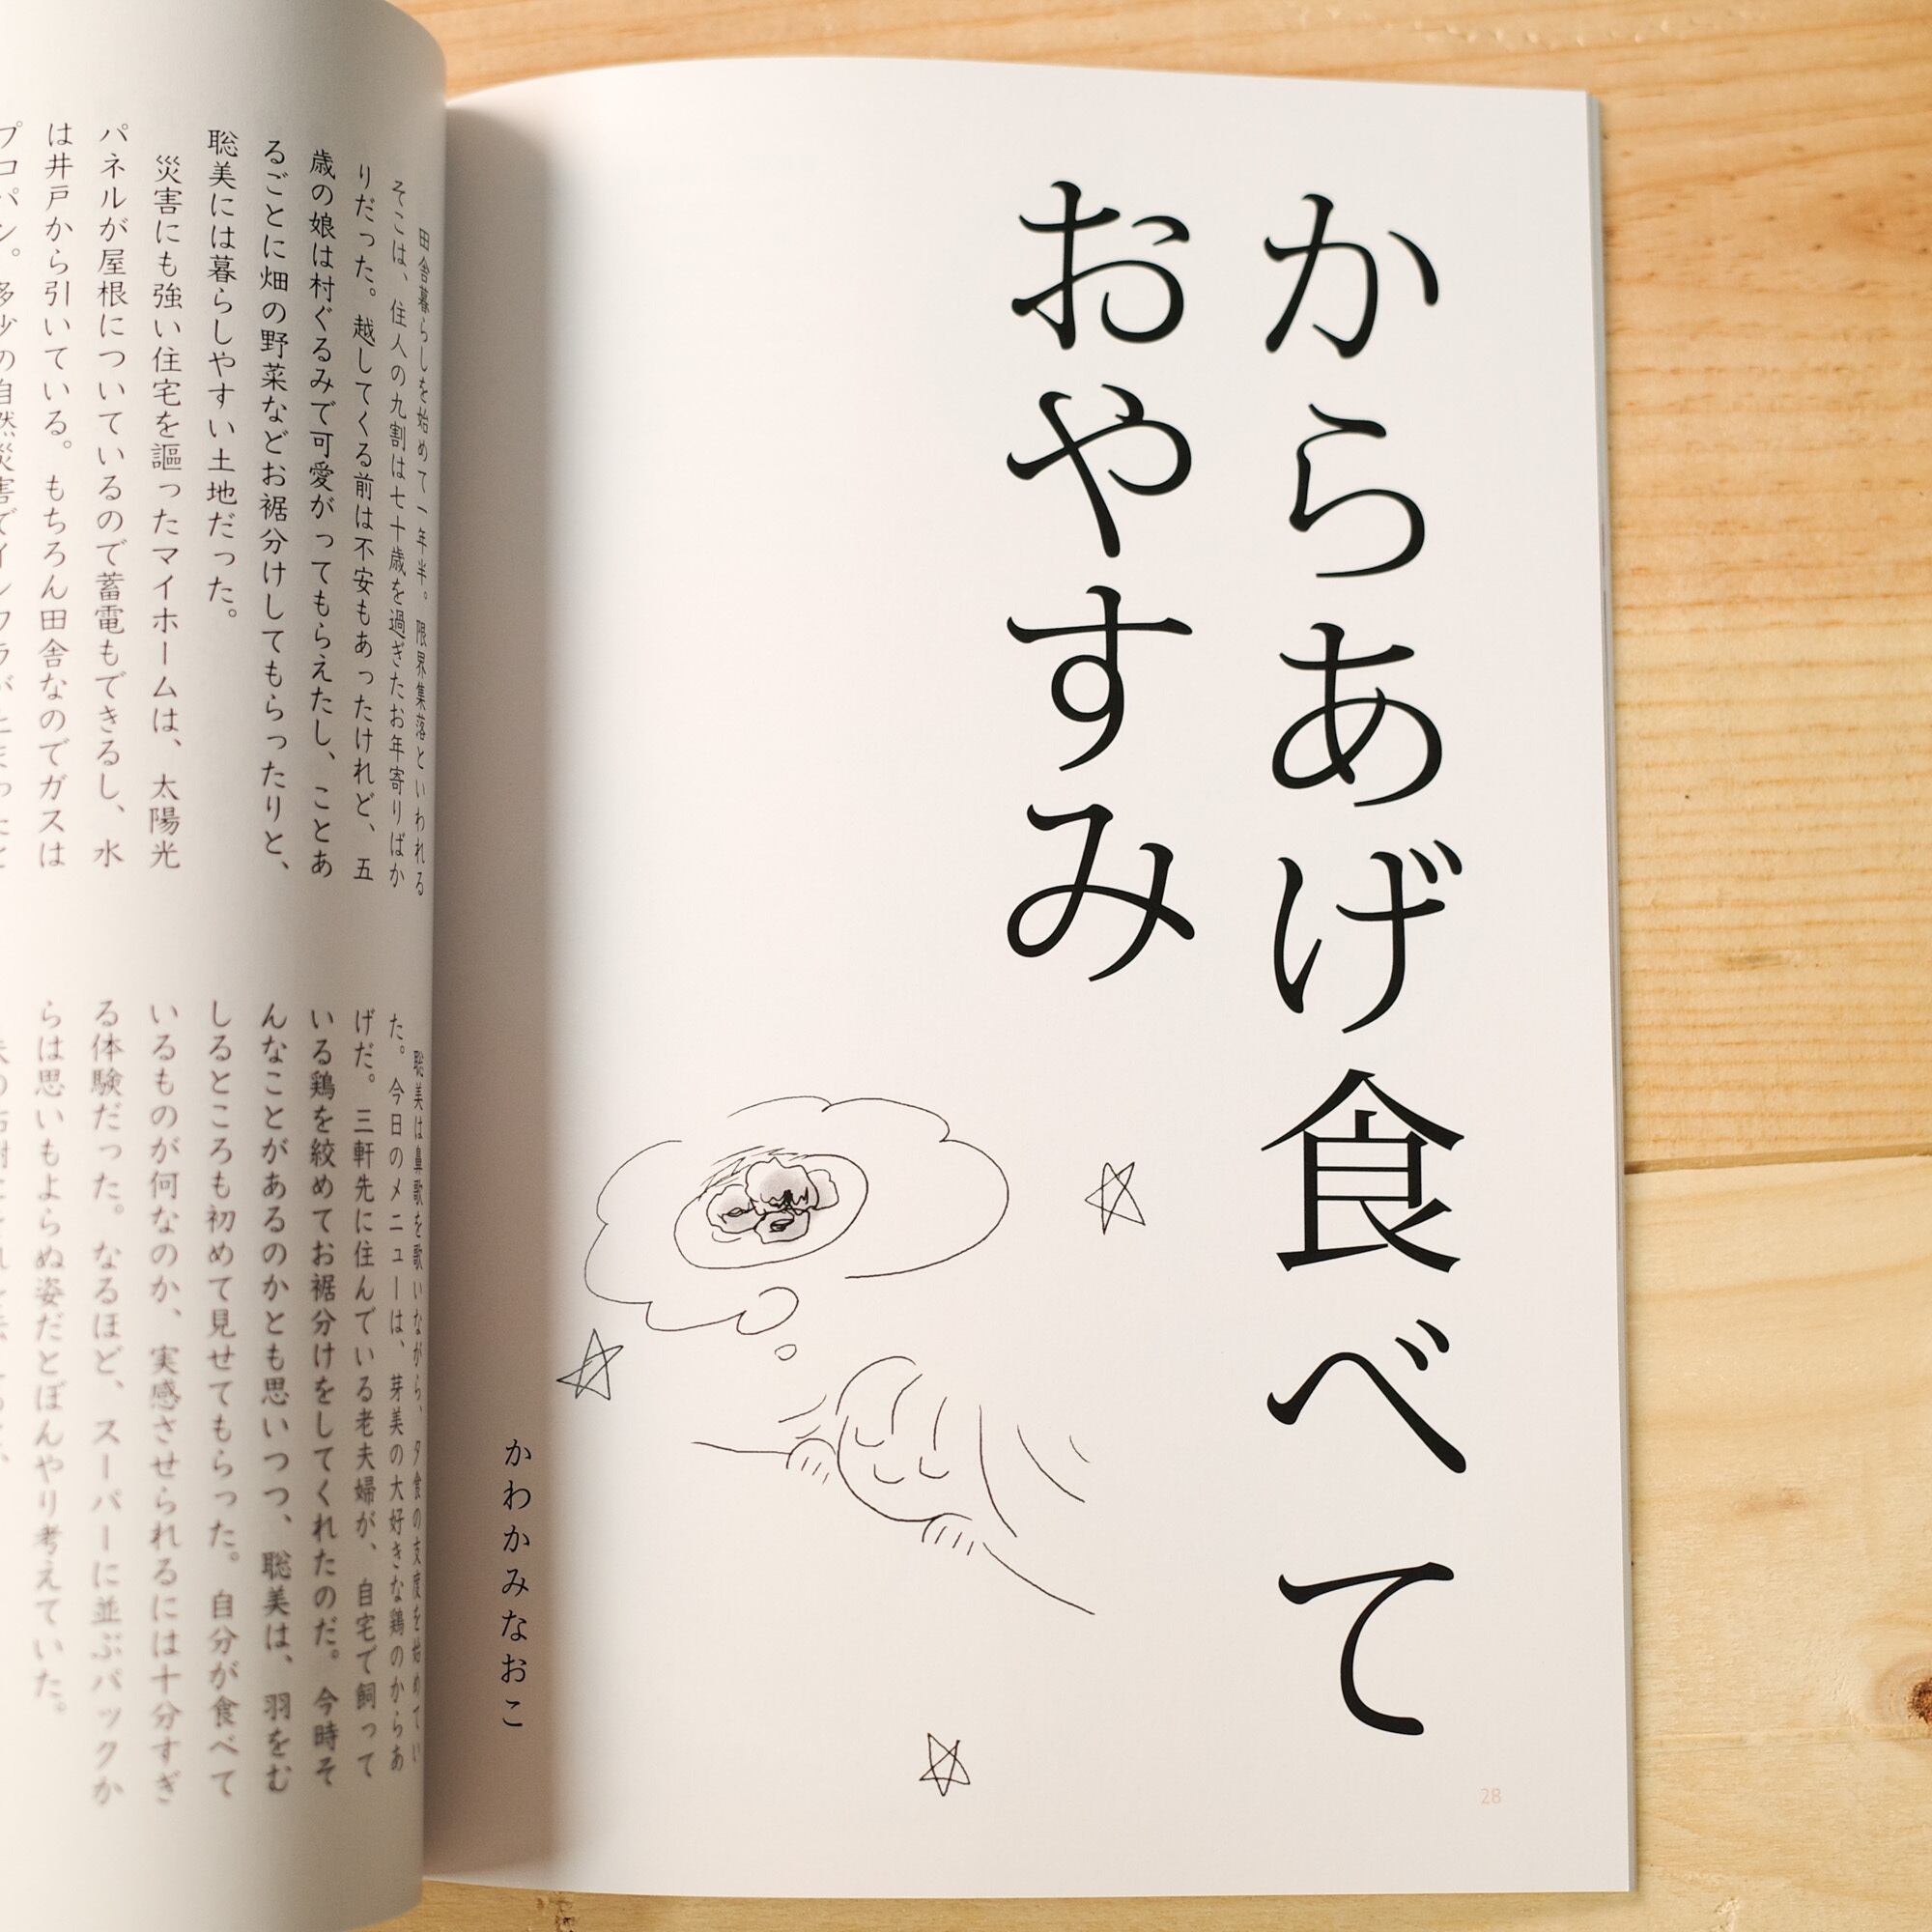 からあげ食べて
おやすみ
かわかみなおこ
28
田舎暮らしを始めて一年半。限界集落といわれる
そこは、住人の九割は七十歳を過ぎたお年寄りばか
りだった。越してくる前は不安もあったけれど、五
歳の娘は村ぐるみで可愛がってもらえたし、ことあ
るごとに畑の野菜などお裾分けしてもらったりと、
聡美には暮らしやすい土地だった。
災害にも強い住宅を謳ったマイホームは、太陽光
パネルが屋根についているので蓄電もできるし、水
は井戸から引いている。もちろん田舎なのでガスは
プロパン。多少の自然災害でインフラが止まったと
聡美は鼻歌を歌いながら、夕食の支度を始めてい
た。今日のメニューは、芽美の大好きな鶏のからあ
げだ。三軒先に住んでいる老夫婦が、自宅で飼って
いる鶏を絞めてお裾分けをしてくれたのだ。今時そ
んなことがあるのかとも思いつつ、聡美は、羽をむ
しるところも初めて見せてもらった。自分が食べて
いるものが何なのか、実感させられるには十分すぎ
る体験だった。なるほど、スーパーに並ぶパックか
らは思いもよらぬ姿だとぼんやり考えていた。